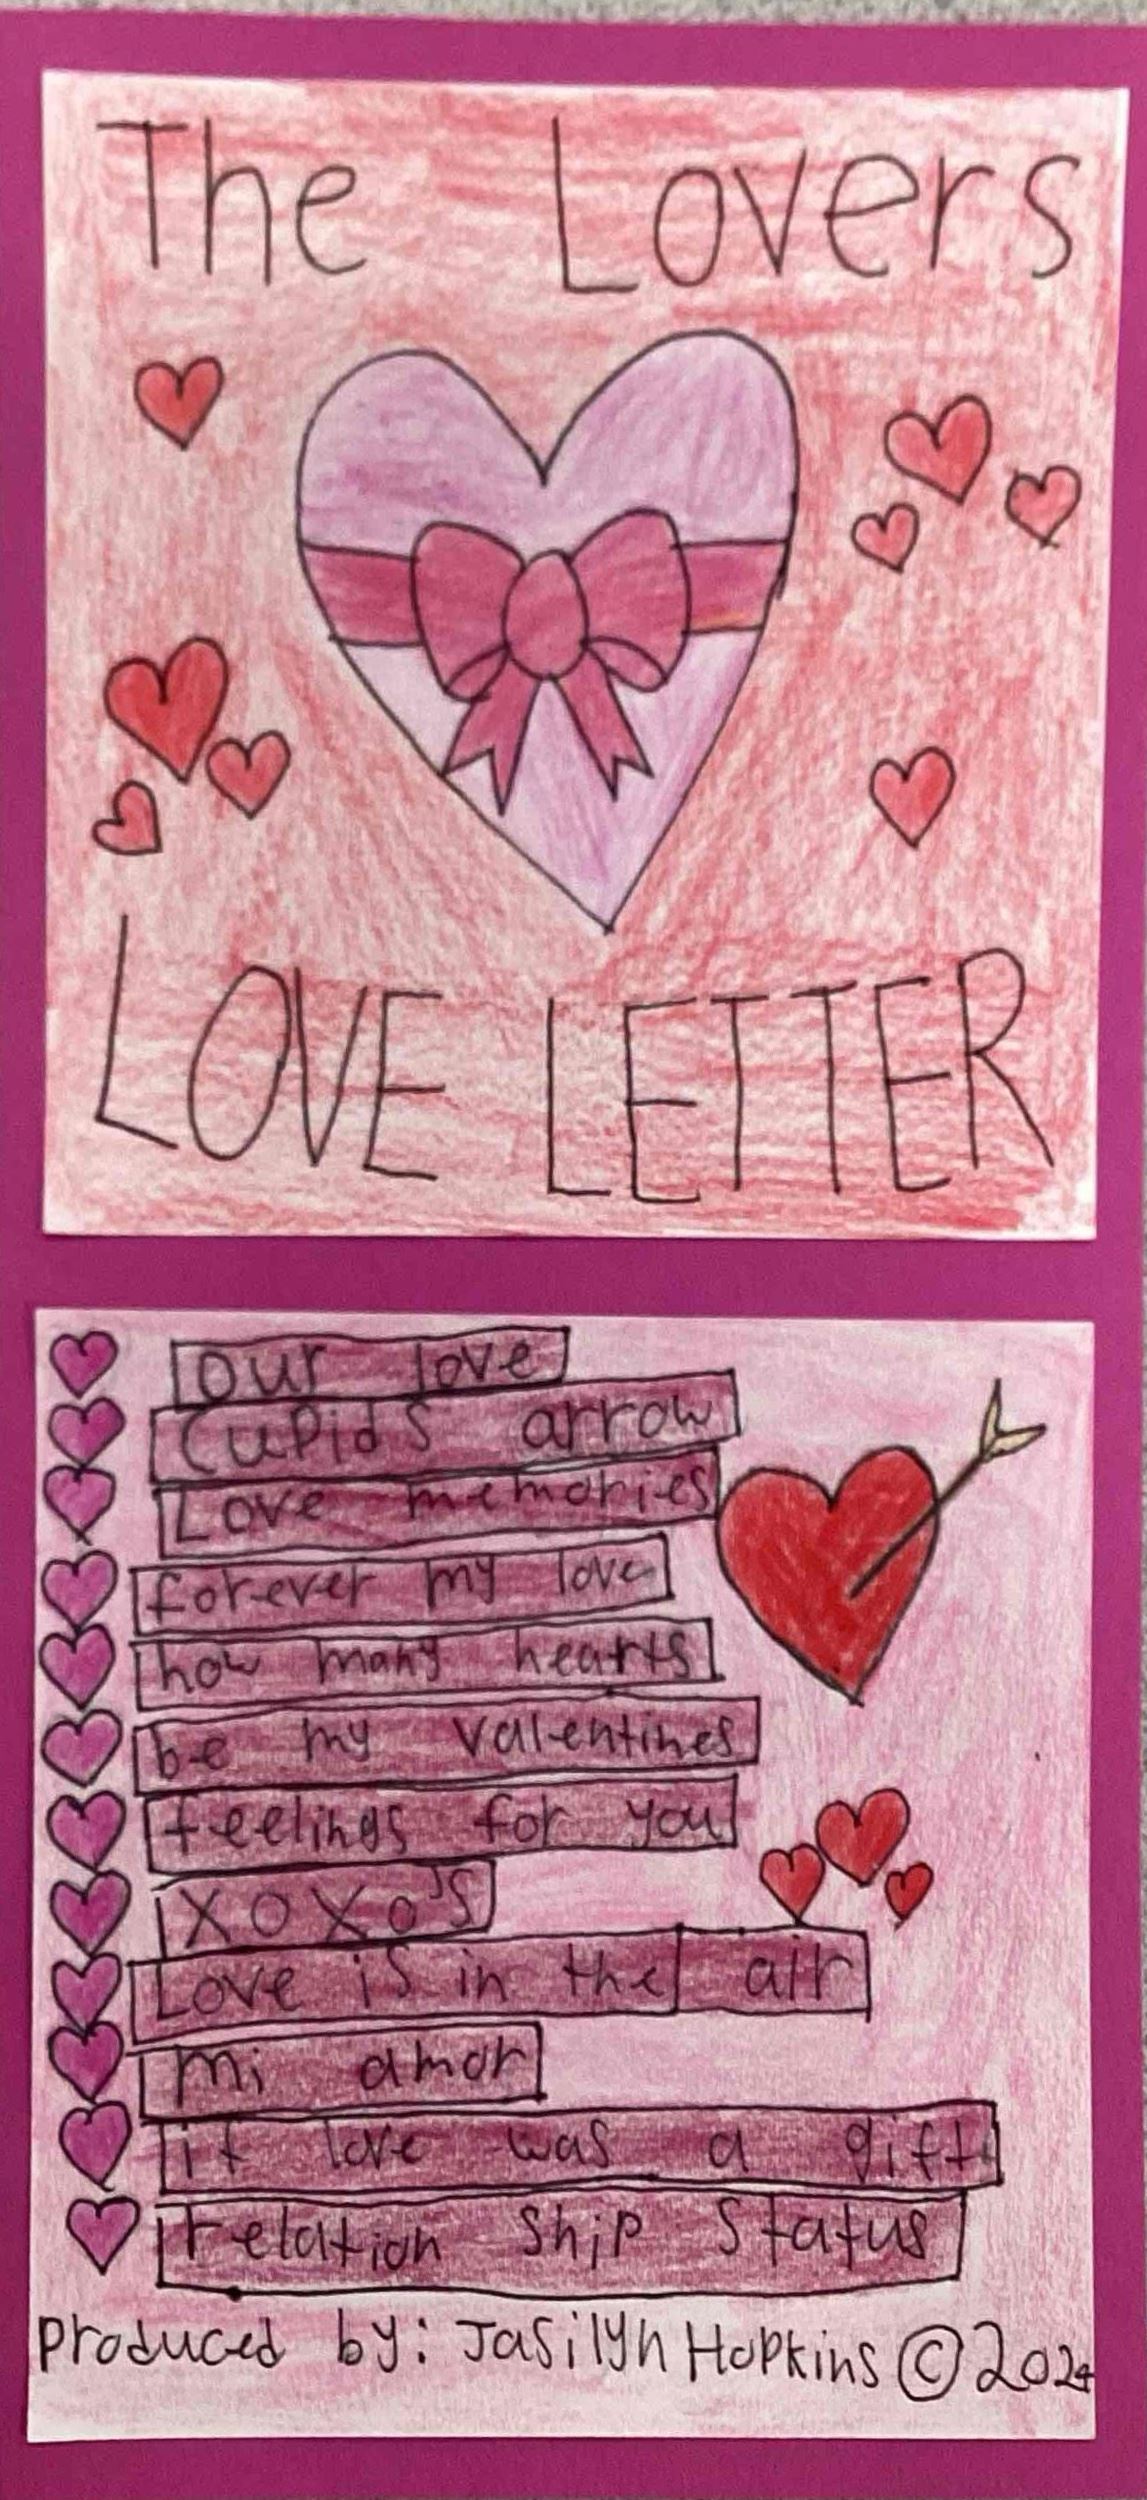 The Lovers
LOVE LETTER
our love
Cupids arrow
Love memories
forever my love
how many hearts
be my valentines
feelings for you
XOXO'S
Love is in the air
mi amor
if love was a gift
relation ship status
produced by: Jasilyn Hopkins © 2024